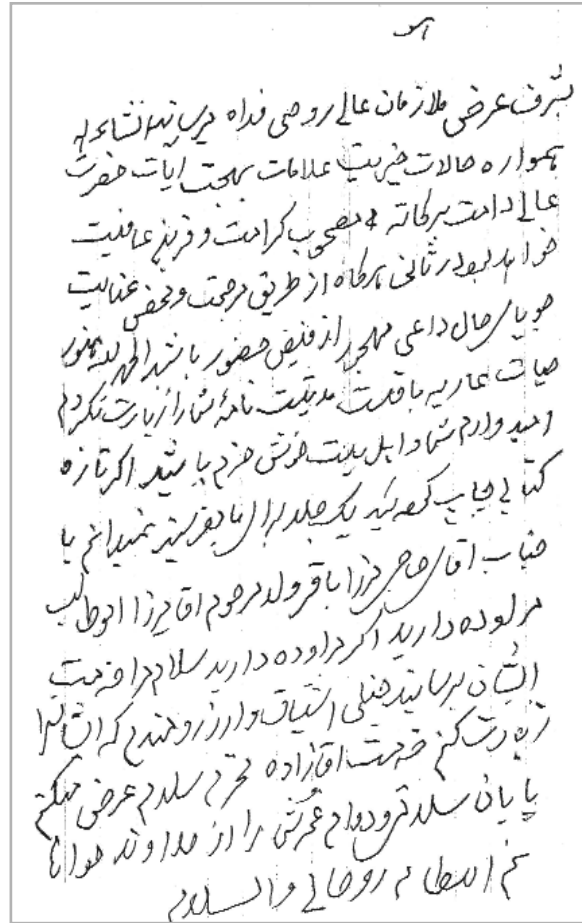 بشرف عرض ملازمان عالی روحی فداه میرساند انشاءالله
همواره حالات خیریت علامات بهجت آیات حضرت
عالی دامت برکاته مصحوب کرامت و قرین عافیت
خواهد بود در ثانی هرگاه از طریق مرحمت و محض عنایت
جویای حال داعی مهجور از فیض حضور باشید الحمد لله هنوز
حیات عاریه باقیست مدتیست نامهٔ شما را زیارت نکردم
امیدوارم شما و اهل بیت خوش و خرم باشید اگر تازه
کتابی چاپ کرده‌اید یک جلد برای ما بفرستید نمیدانم با
جناب آقای حاجی میرزا باقر ولد مرحوم آقا میرزا ابوطالب
مراوده دارید اگر مراوده دارید سلام مرا خدمت
ایشان برسانید خیلی اشتیاق و آرزومندم که ایشانرا
زیارت کنم خدمت آقازاده محترم سلام عرض میکنم
پایان سلامتی و دوام عمرش را از خداوند خواهانم
نجم‌الدین روحانی والسلام